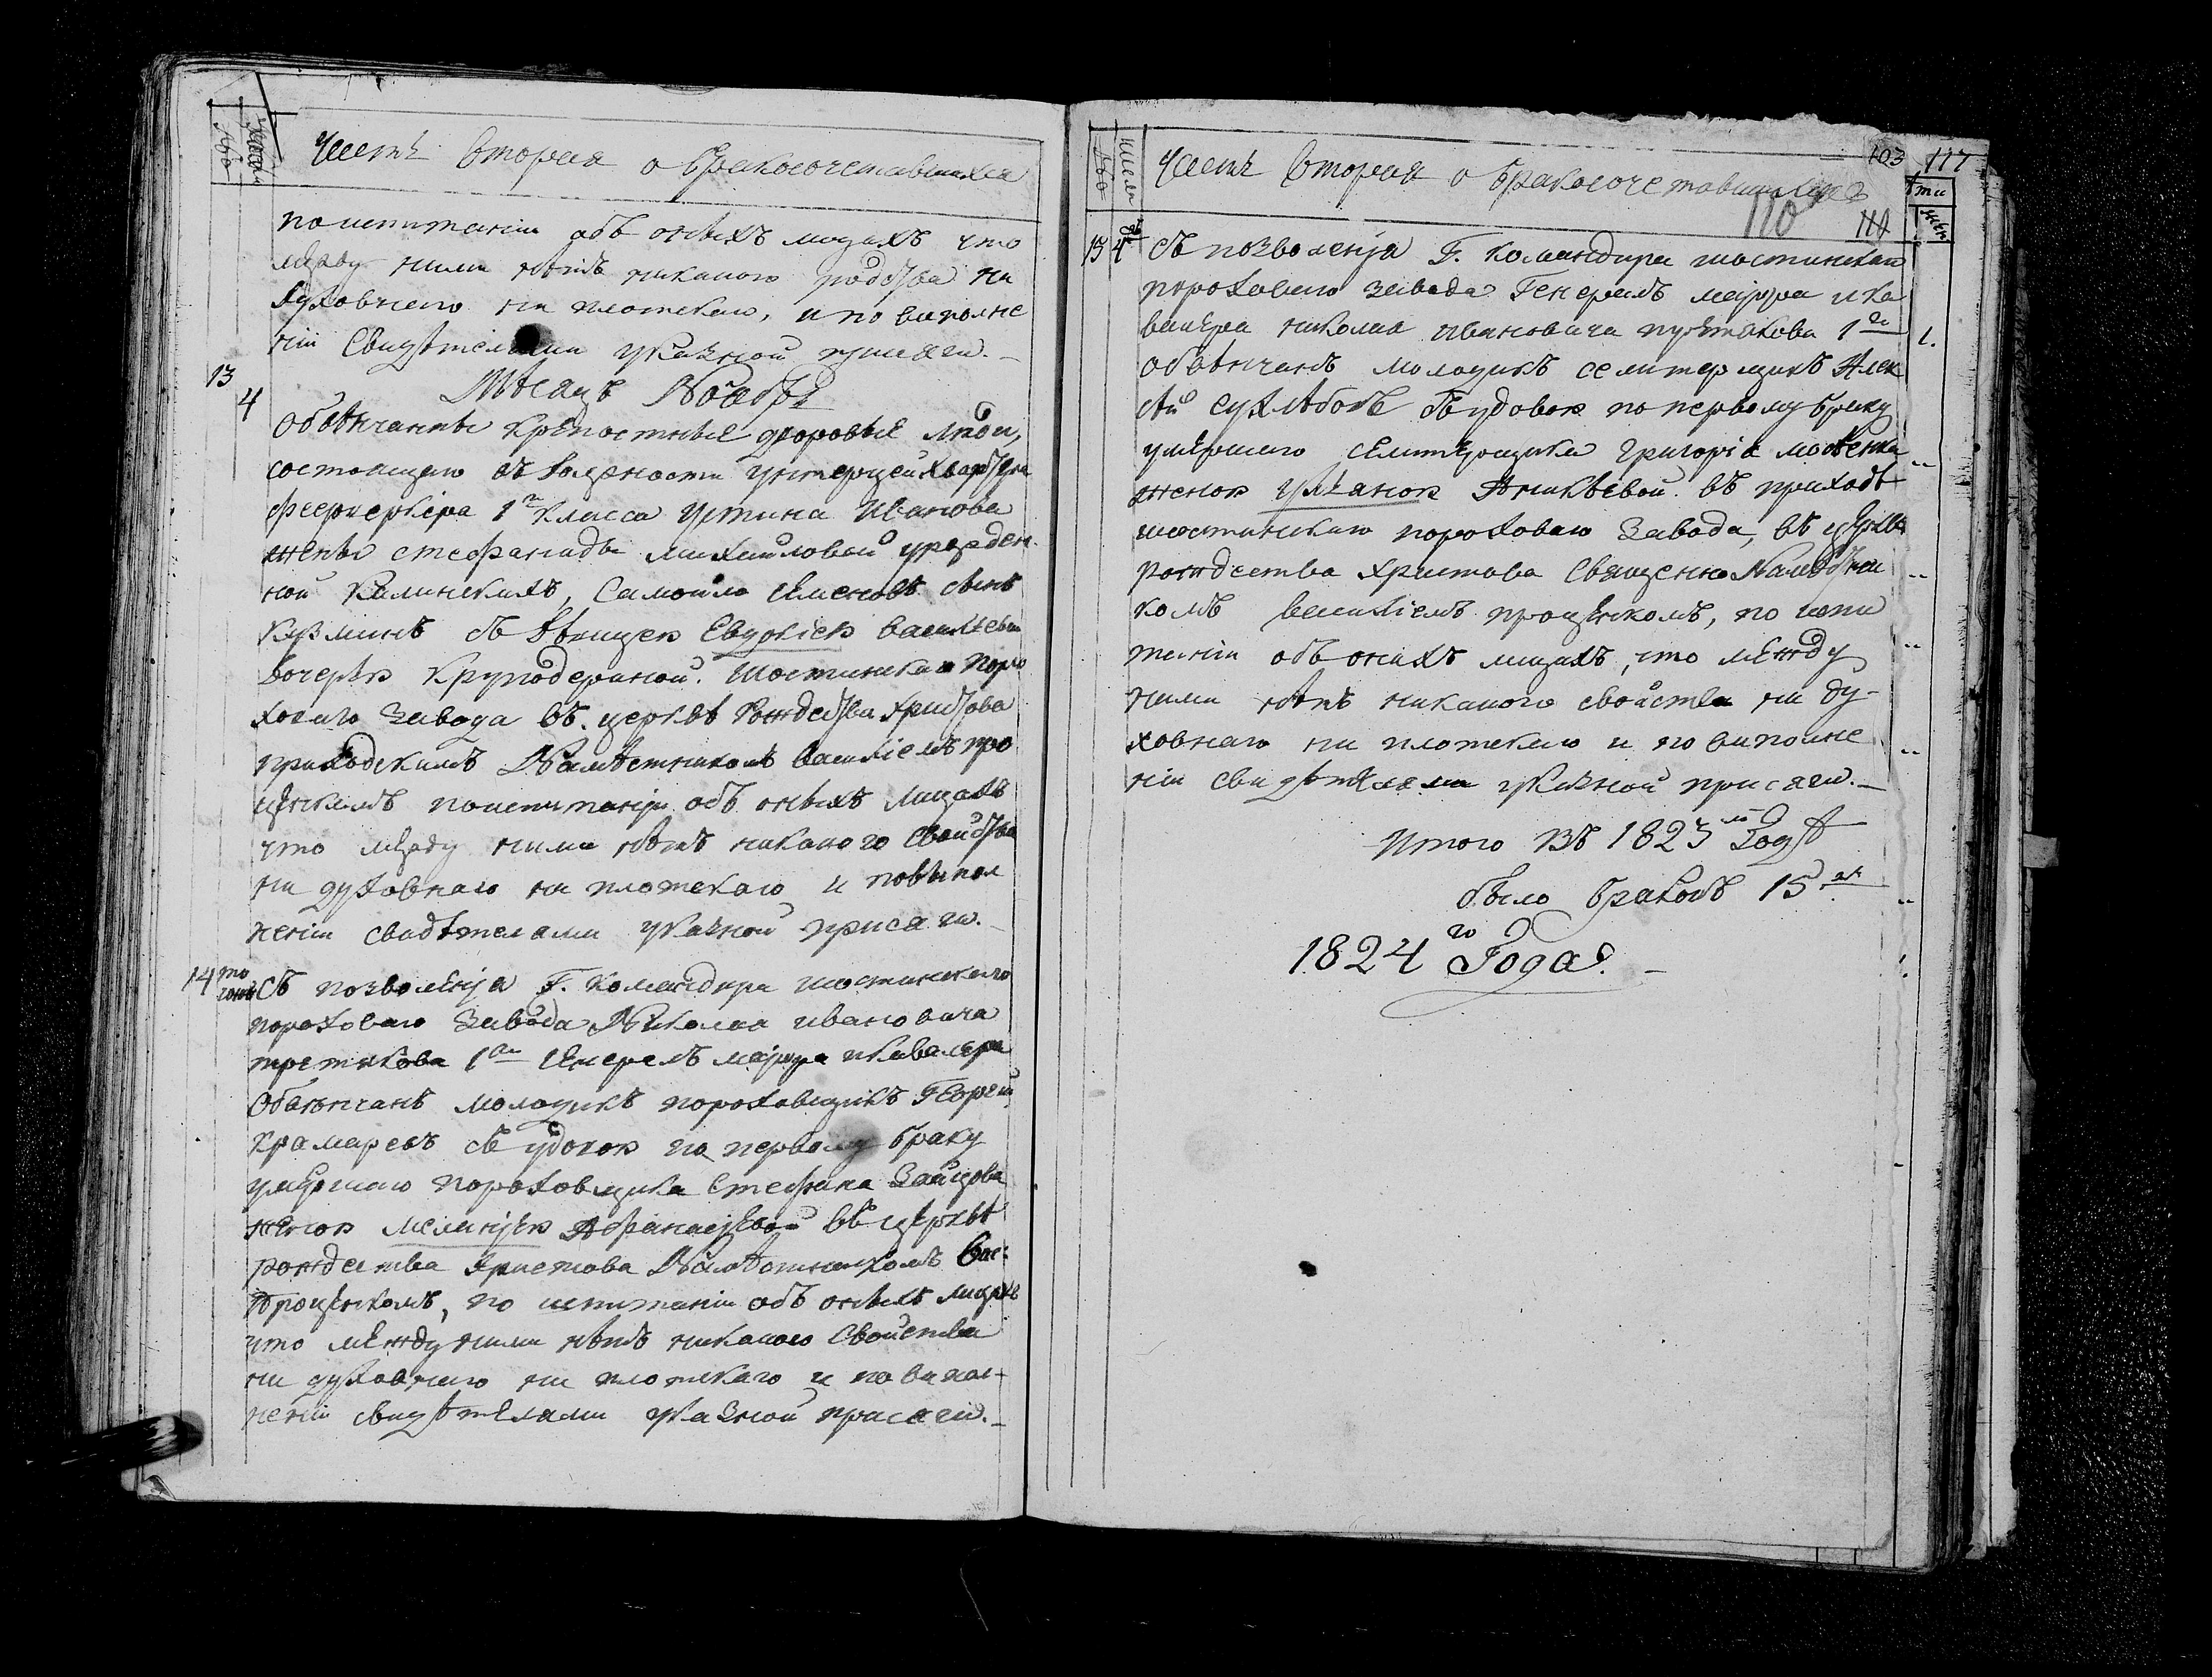 Часть вторая о бракосочетавшихся
по испитаніи объ оныхъ лицахъ что
между ними нѣтъ никакого родства ни
духовнего ни плотскаго, и по виполне
ніи свидѣтелями указной присяги.
13
Мѣсяцъ Ноябрь
4
Обвѣнчанны крѣпостные дворовые люди,
состоящего въ должности
феерверкера 1 класса Устина Иванова
жены стефаниды михайловой урожден
ной Калинскихъ, Самойло Семеновъ сынъ
Кузминъ съ дѣвицею Евдокіею васильевою
дочерью Круподериной. Шостинскаго поро
ховаго завода въ церквѣ Рождества Христова
приходскимъ Намѣстникомъ василіемъ про
ценкомъ по испитаніи объ оныхъ лицахъ
что между ними нѣтъ никакого свойства
ни духовнаго ни плотскаго и по выпол
неніи свидѣтелями указной присяги.
14 того съ позволенія Г. Командира шостинскаго
пороховаго завода Николая ивановича
третякова 1го Генералъ маіора и кавалера
Обвѣнчанъ молодикъ пороховщикъ Георгій
крамаревъ съ удовою по первому браку
умершаго пороховщика Стефана Зайцова
женою меланіею Афанасіевой въ церквѣ
рождества христова Намѣстникомъ Вас:
Проценкомъ, по испитаніи объ оныхъ лицахъ
что между ними нѣтъ никакого свойства
ни духовнаго ни плотскаго и по випол-
неніи свидѣтелями указной присяги.
103 117
Часть вторая о бракосочетавшихся
110 110
15 4 съ позволенія Г. Командира шостинскаго
пороховаго завода Генералъ маіора и ка
валера николая ивановича третякова 1го
обвѣнчанъ молодикъ селитерщикъ Алек
сѣй сухлѣбовъ съ удовою по первому браку
умершаго селитерщика Григорія
женою Уліаною Аникѣевой въ приходѣ
шостинскаго пороховаго завода, въ церквѣ
рождества христова священно Намѣстни
комъ василіемъ проценкомъ, по испи
таніи объ онихъ лицахъ, что между
ними нѣтъ никакого свойства ни ду-
ховнаго ни плотскаго и по виполне
ніи свидѣтелями указной присяги.
Итого въ 1823мъ Годѣ
было браковъ 15ть
1824го Года.